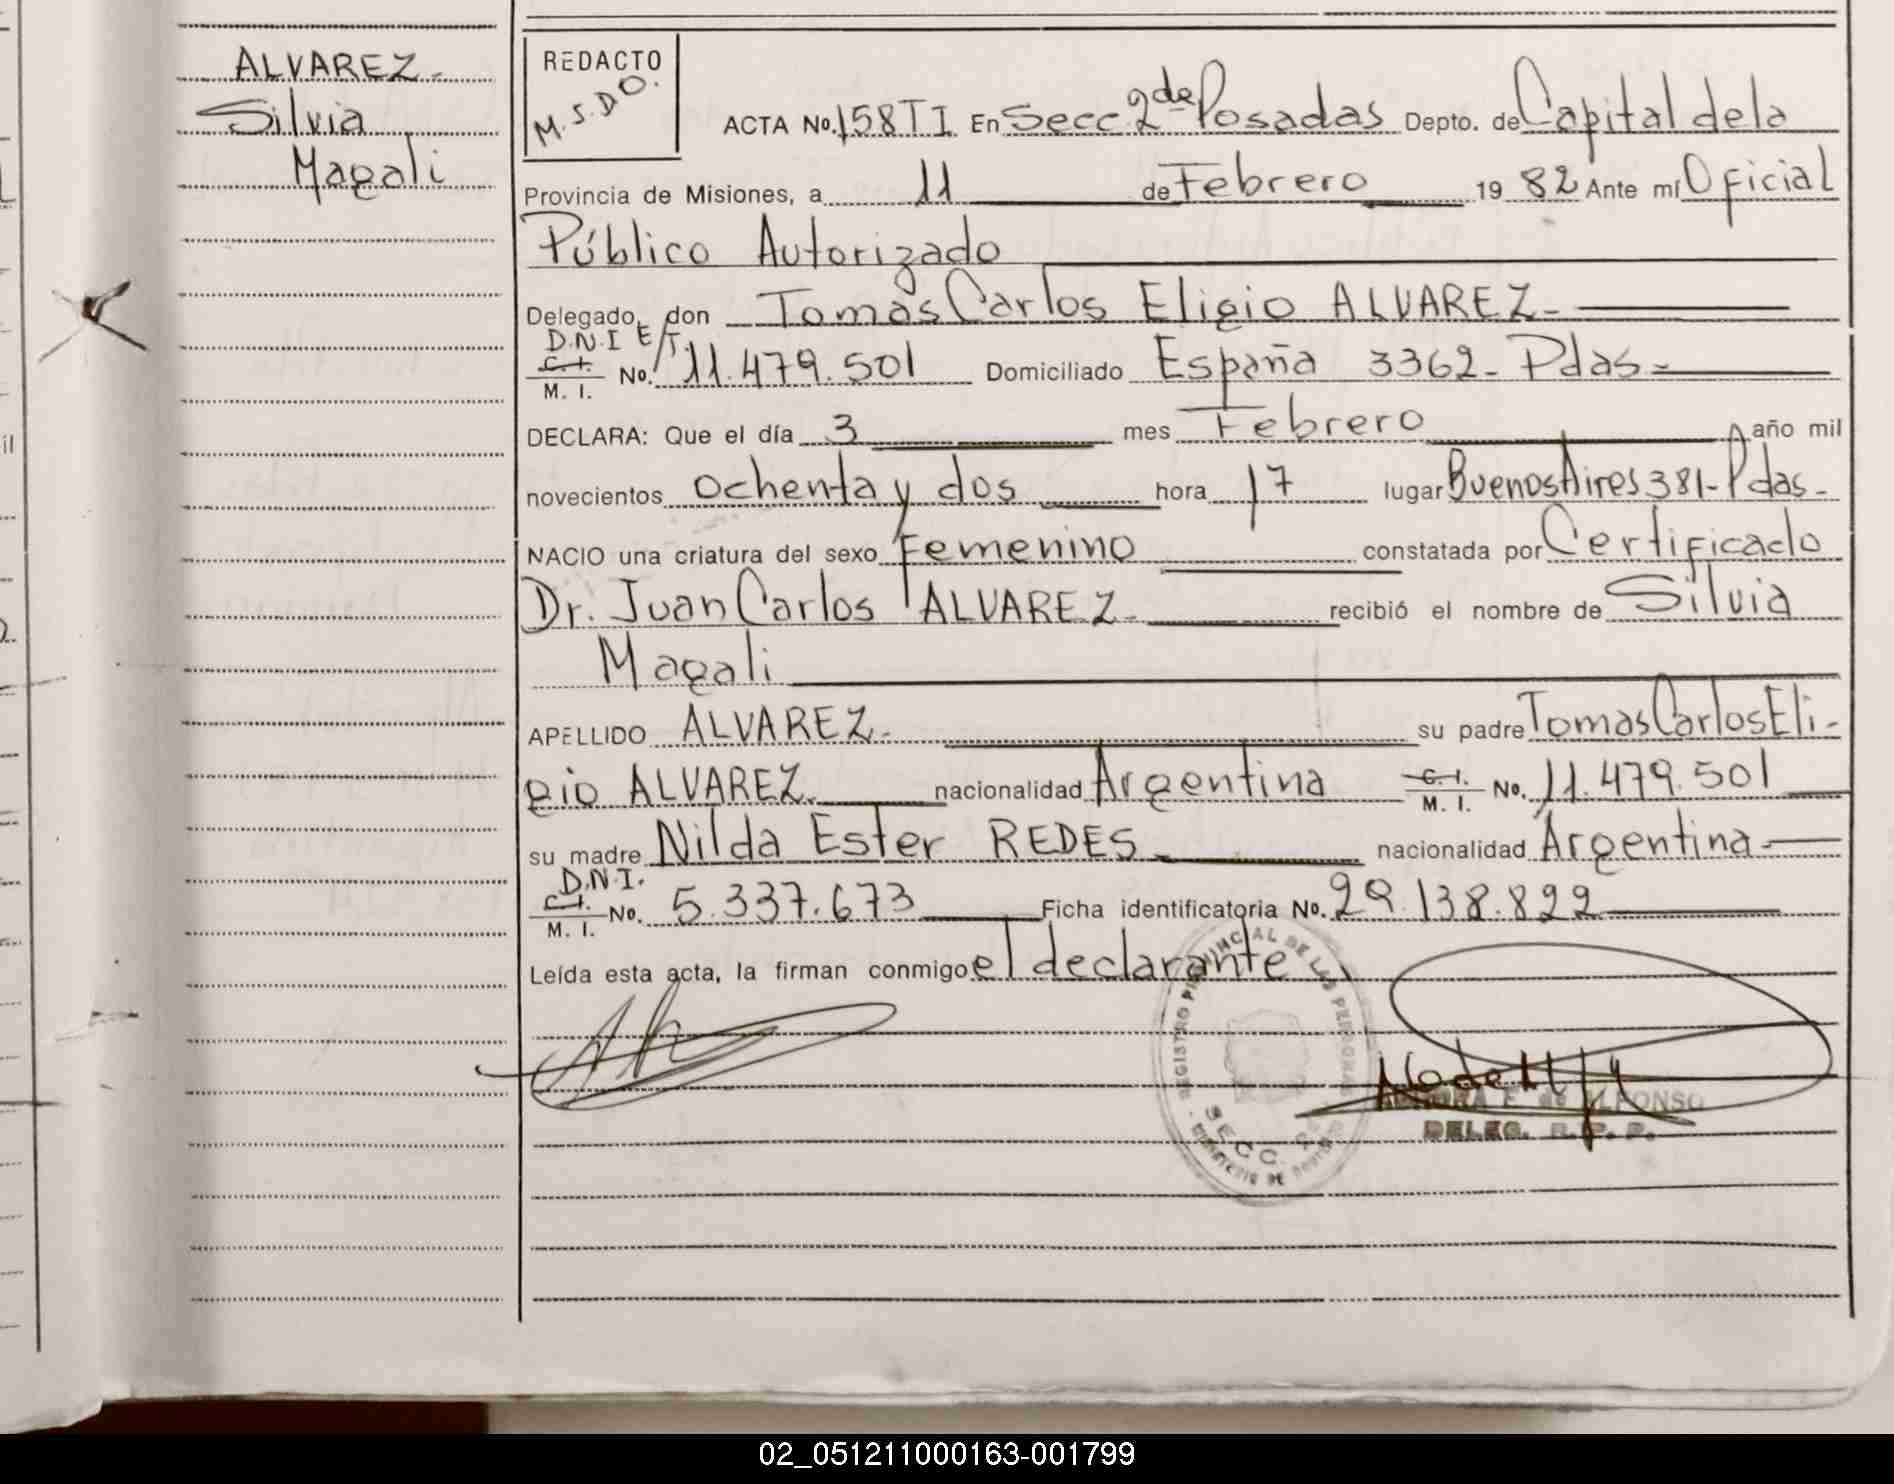 ALVAREZ-
Silvia
Magali
REDACTO
M.S.DO.
ACTA No. 158TI En Secc 2da Posadas Depto. de Capital dela
Provincia de Misiones, a 11 de Febrero 19 82 Ante mí Oficial
Público Autorizado
Delegado, don Tomas Carlos Eligio ALVAREZ-
D.N.I E/T.
C. I. M. I. No. 11.479.501 Domiciliado España 3362- Pdas-
DECLARA: Que el día 3 mes Febrero año mil
novecientos ochenta y dos hora 17 lugar Buenos Aires 381- Pdas-
NACIO una criatura del sexo Femenino constatada por Certificado
Dr. Juan Carlos ALVAREZ- recibió el nombre de Silvia
Magali
APELLIDO ALVAREZ- su padre Tomas Carlos Eli-
gio ALVAREZ- nacionalidad Argentina C. I. M. I. No. 11.479.501
su madre Nilda Ester REDES- nacionalidad Argentina-
D.N.I.
C. I. M. I. No. 5.337.673 Ficha identificatoria No. 29.138.822
Leída esta acta, la firman conmigo el declarante
REGISTRO PROVINCIAL DE LAS PERSONAS
SECC.
de ALFONSO
DELEG. R. P. P.
02_051211000163-001799